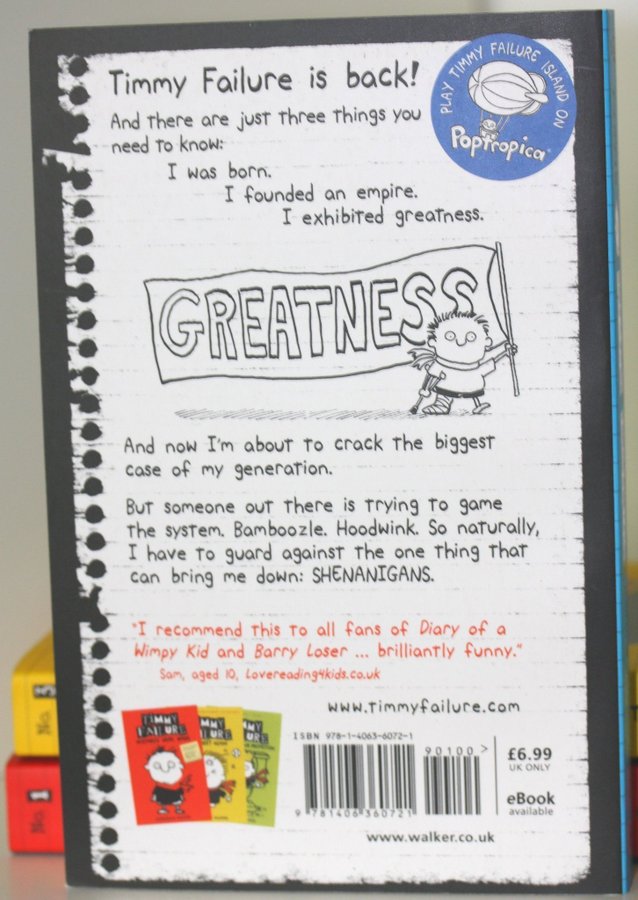 Timmy Failure is back!
PLAY TIMMY FAILURE ISLAND ON
Poptropica
And there are just three things you
need to know:
I was born.
I founded an empire.
I exhibited greatness.
GREATNESS
And now I'm about to crack the biggest
case of my generation.
But someone out there is trying to game
the system. Bamboozle. Hoodwink. So naturally,
I have to guard against the one thing that
can bring me down: SHENANIGANS.
"I recommend this to all fans of Diary of a
Wimpy Kid and Barry Loser ... brilliantly funny."
Sam, aged 10, Lovereading4kids.co.uk
www.timmyfailure.com
TIMMY
FAILURE
ISBN 978-1-4063-6072-1
90100 >
9 781406 360721
£6.99
UK ONLY
eBook
available
www.walker.co.uk
No.
No. 1